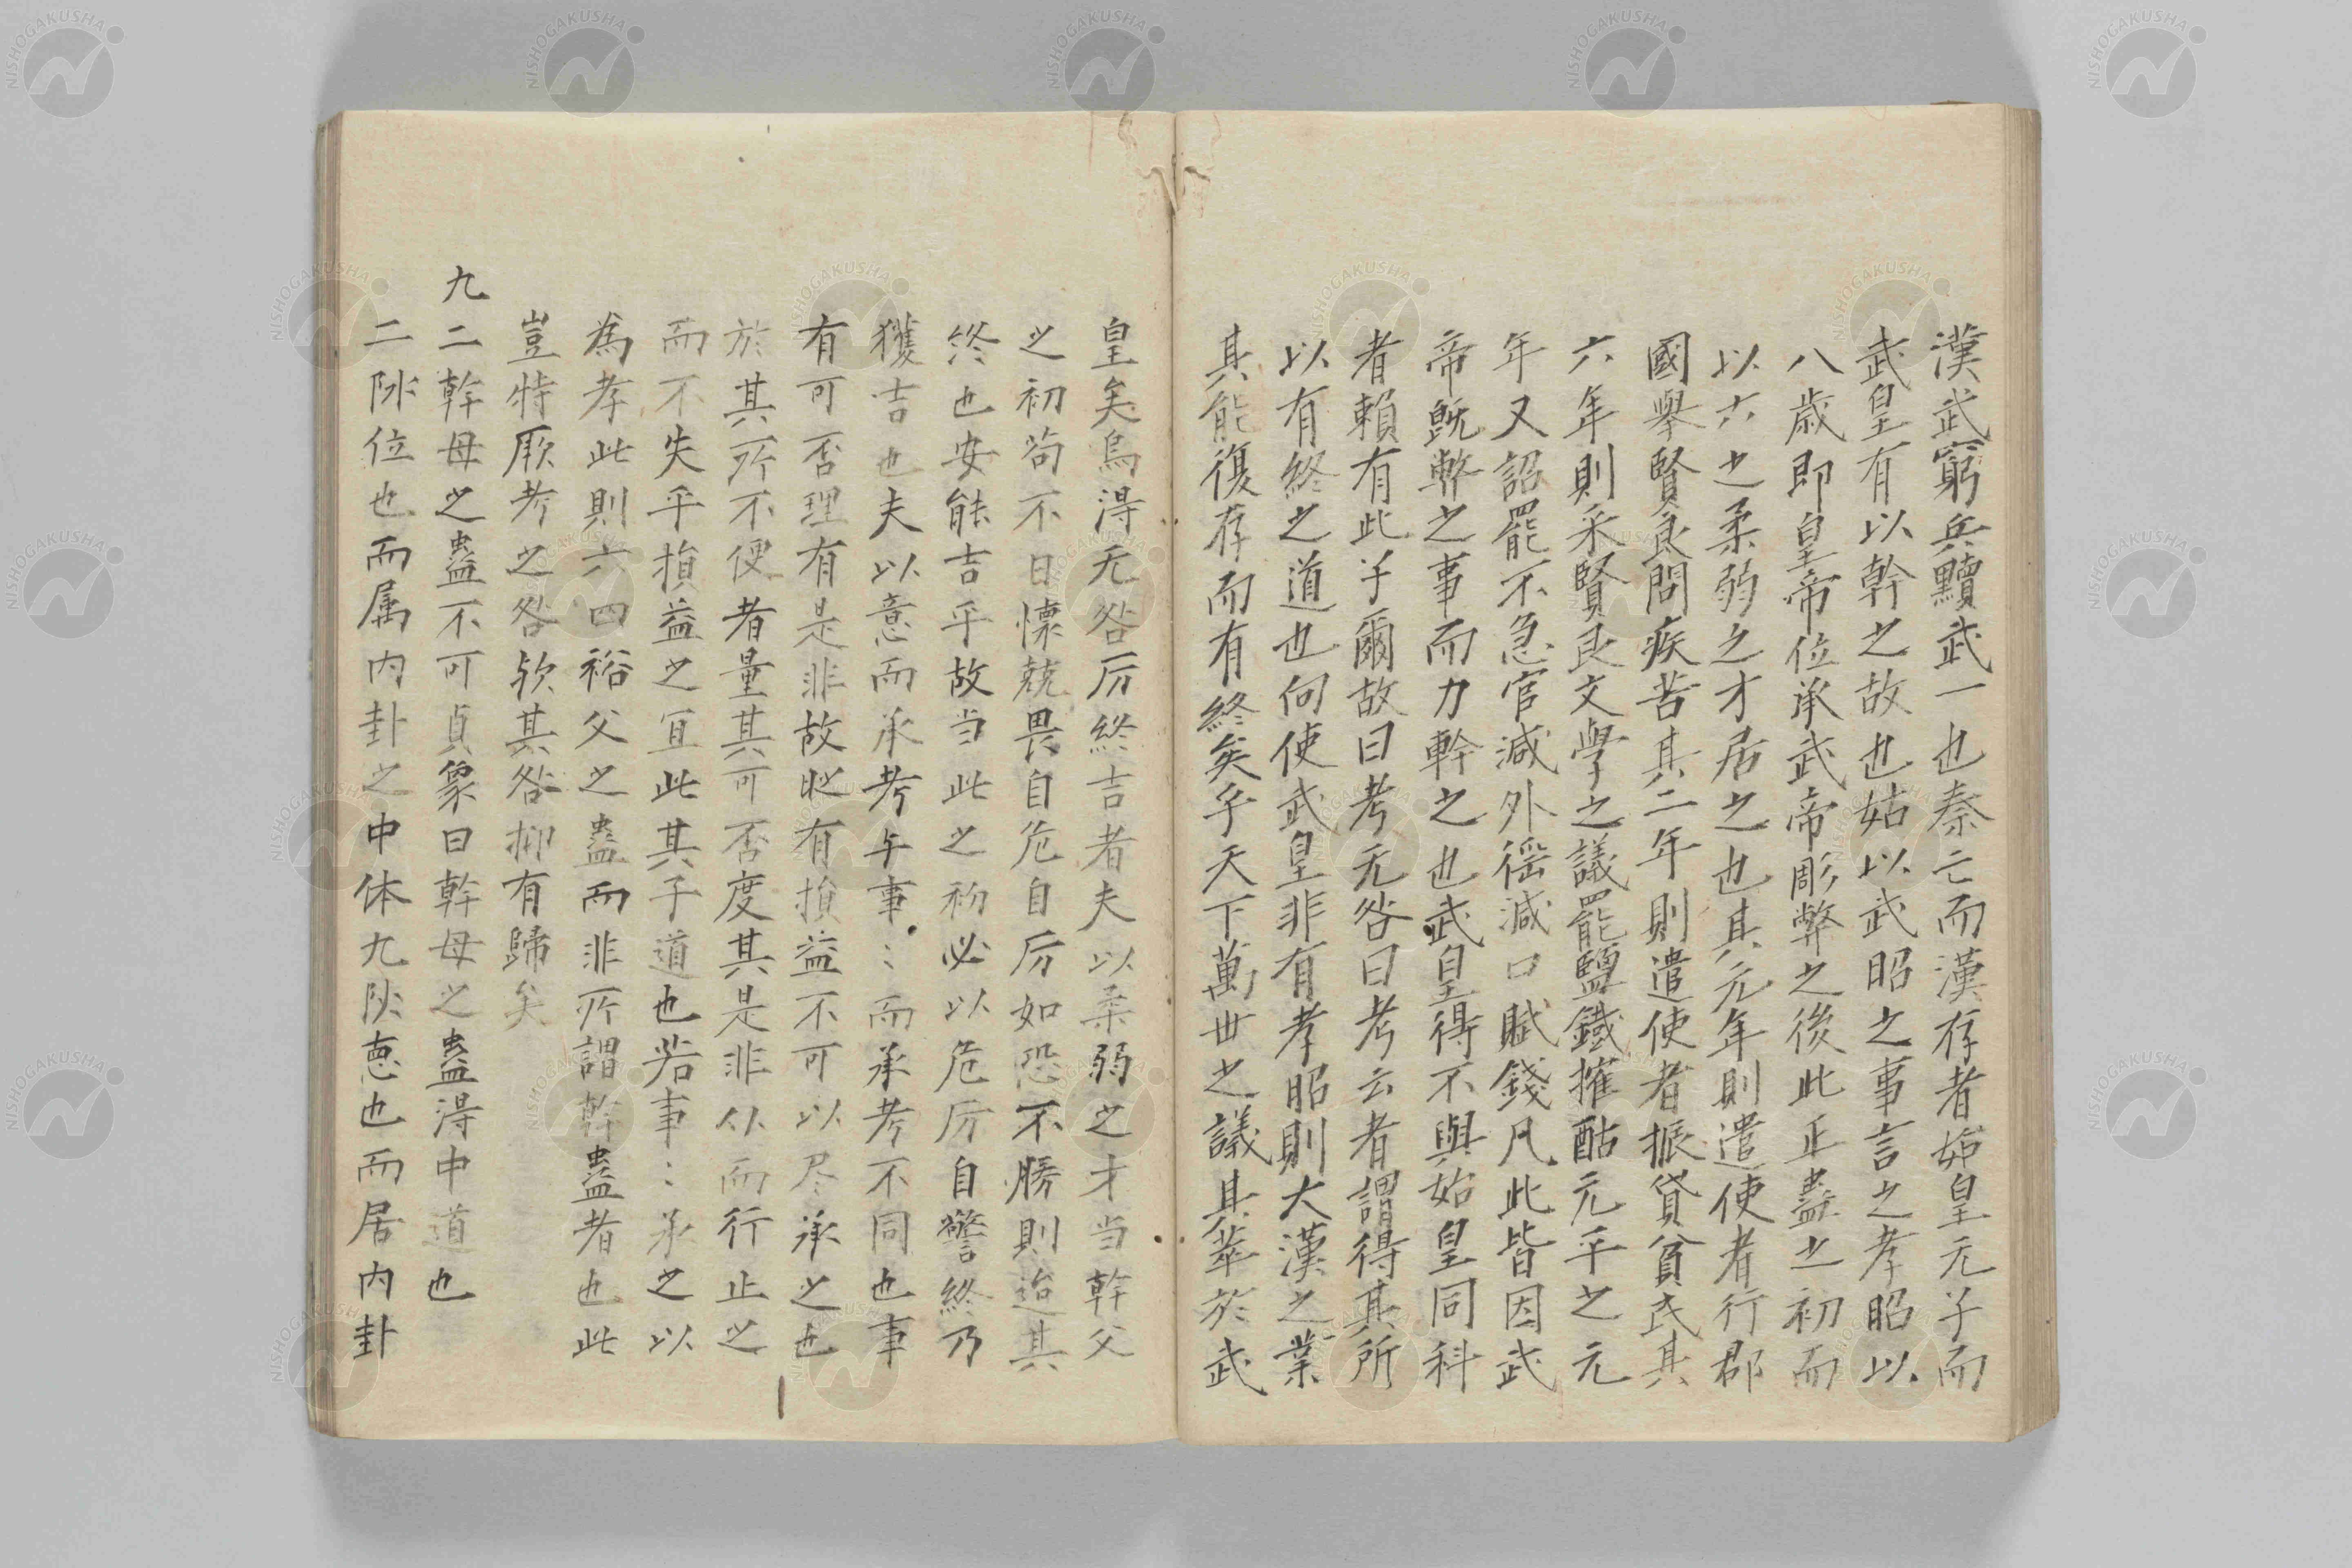 漢武窮兵黷武一也秦亡而漢存者始皇无子而
武皇有以幹之故也姑以武昭之事言之孝昭以
八歲即皇帝位承武帝彫弊之後此正蠱之初而
以六之柔弱之才居之也其元年則遣使者行郡
國舉賢良問疾苦其二年則遣使者振貸貧民其
六年則采賢良文學之議罷鹽鐵搉酤元平之元
年又詔罷不急官減外徭減口賦錢凡此皆因武
帝既弊之事而力幹之也武皇得不與始皇同科
者賴有此子爾故曰考无咎曰考云者謂得其所
以有終之道也向使武皇非有孝昭則大漢之業
其能復存而有終矣乎天下萬世之議其萃於武
皇矣烏得无咎厉終吉者夫以柔弱之才当幹父
之初苟不日懐兢畏自危自厉如恐不勝則迨其
終也安能吉乎故当此之初必以危厉自警終乃
獲吉也夫以意而承考与事〻而承考不同也事
有可否理有是非故時有損益不可以尽承之也
於其所不便者量其可否度其是非从而行止之
而不失乎損益之宜此其子道也若事〻承之以
為孝此則六四裕父之蠱而非所謂幹蠱者也此
豈特厥考之咎欤其咎抑有歸矣
九二幹母之蠱不可貞象曰幹母之蠱得中道也
二阴位也而属内卦之中体九阳悳也而居内卦
NISHOGAKUSHA